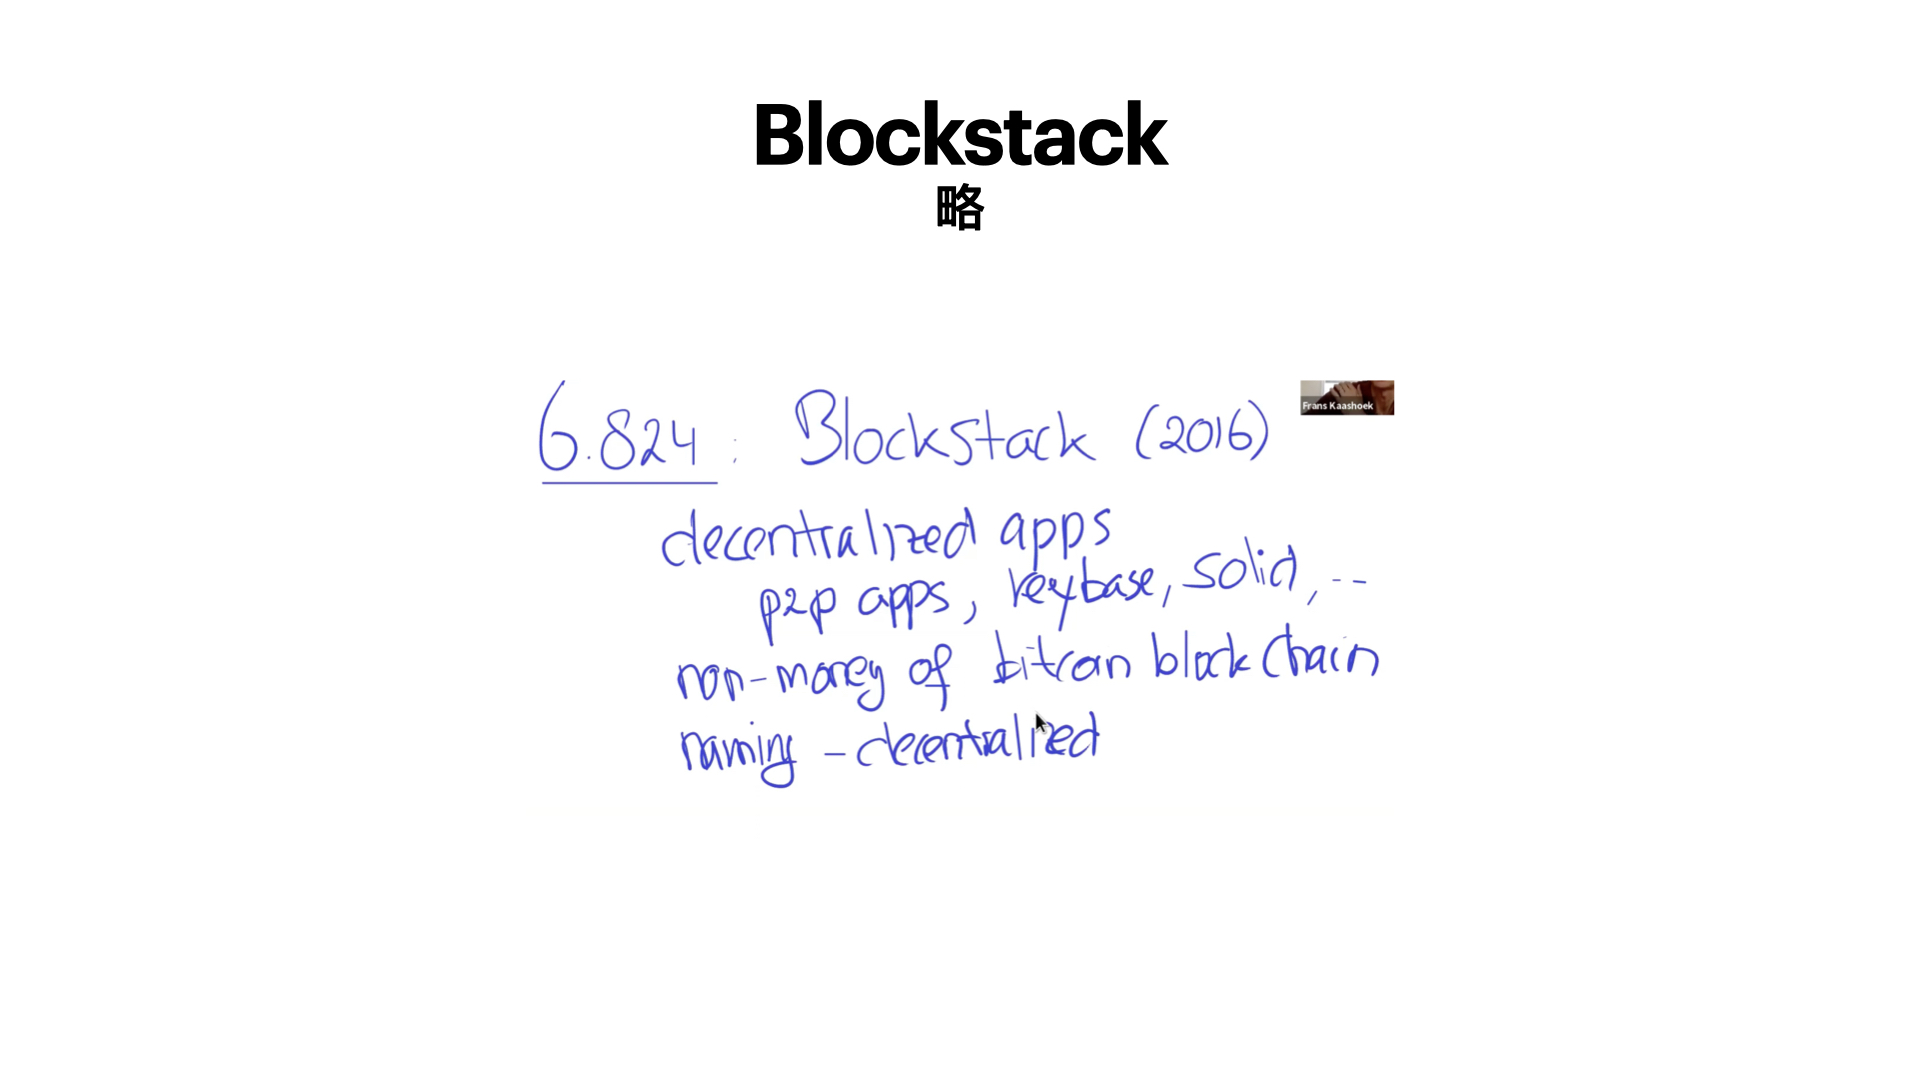 Blockstack
略
6.824 : Blockstack (2016)
Frans Kaashoek
decentralized apps
p2p apps, keybase, solid, --
non-money of bitcoin blockchain
naming - decentralized